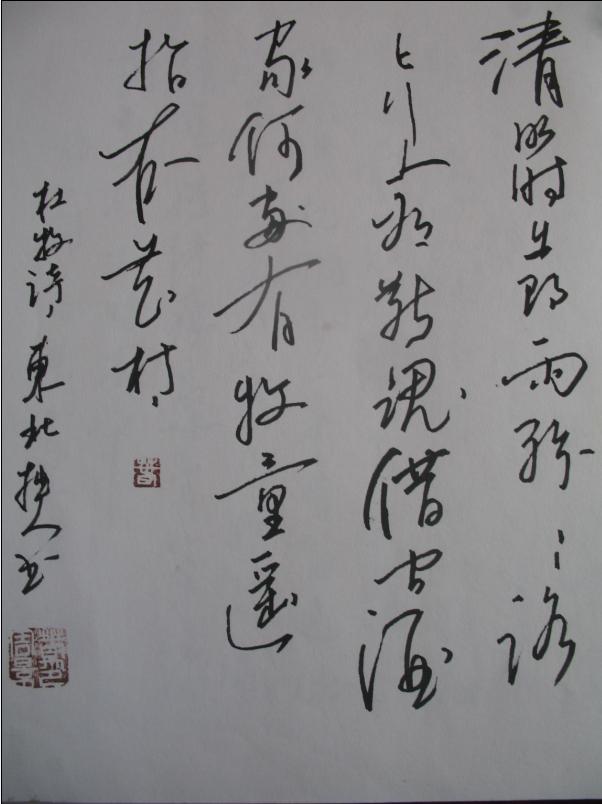 清明时節雨紛々路
上行人欲断魂借问酒
家何處有牧童遥
指杏花村
杜牧诗東北人书